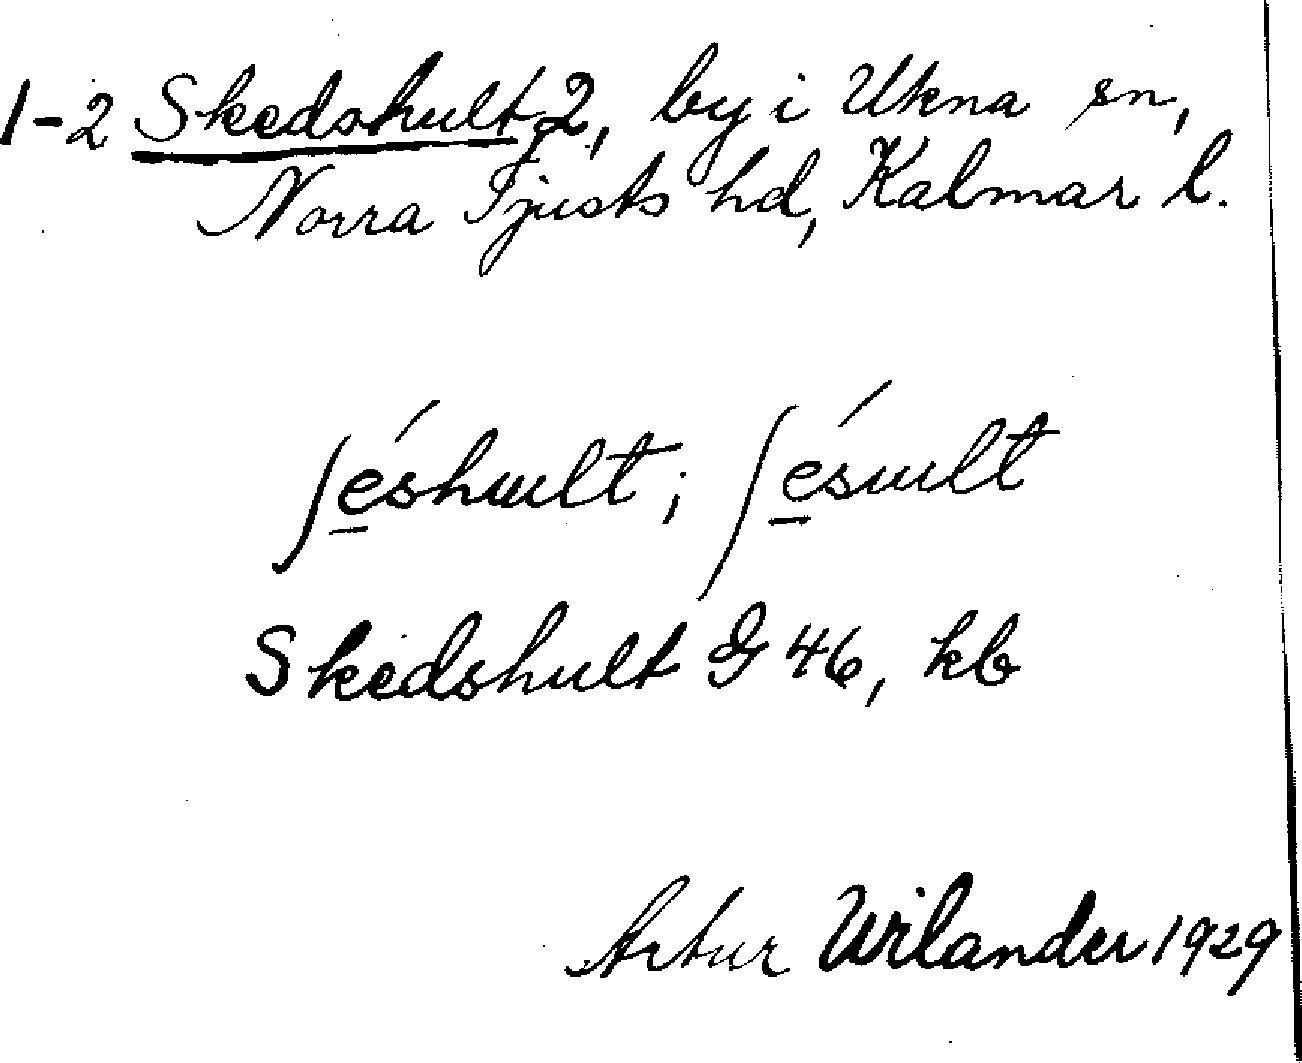 1-2 Skedshult 2, by i Ukna sn,
Norra Tjusts hd, Kalmar l.
ʃe̠´shɯlt; ʃe̠´sɯlt
Skedshult G 46, kb
Artur Wilander 1929